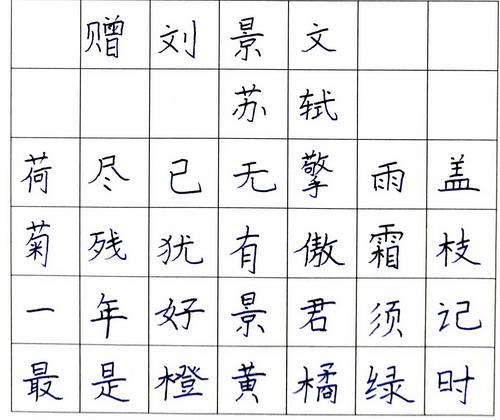 赠刘景文
苏轼
荷尽已无擎雨盖
菊残犹有傲霜枝
一年好景君须记
最是橙黄橘绿时